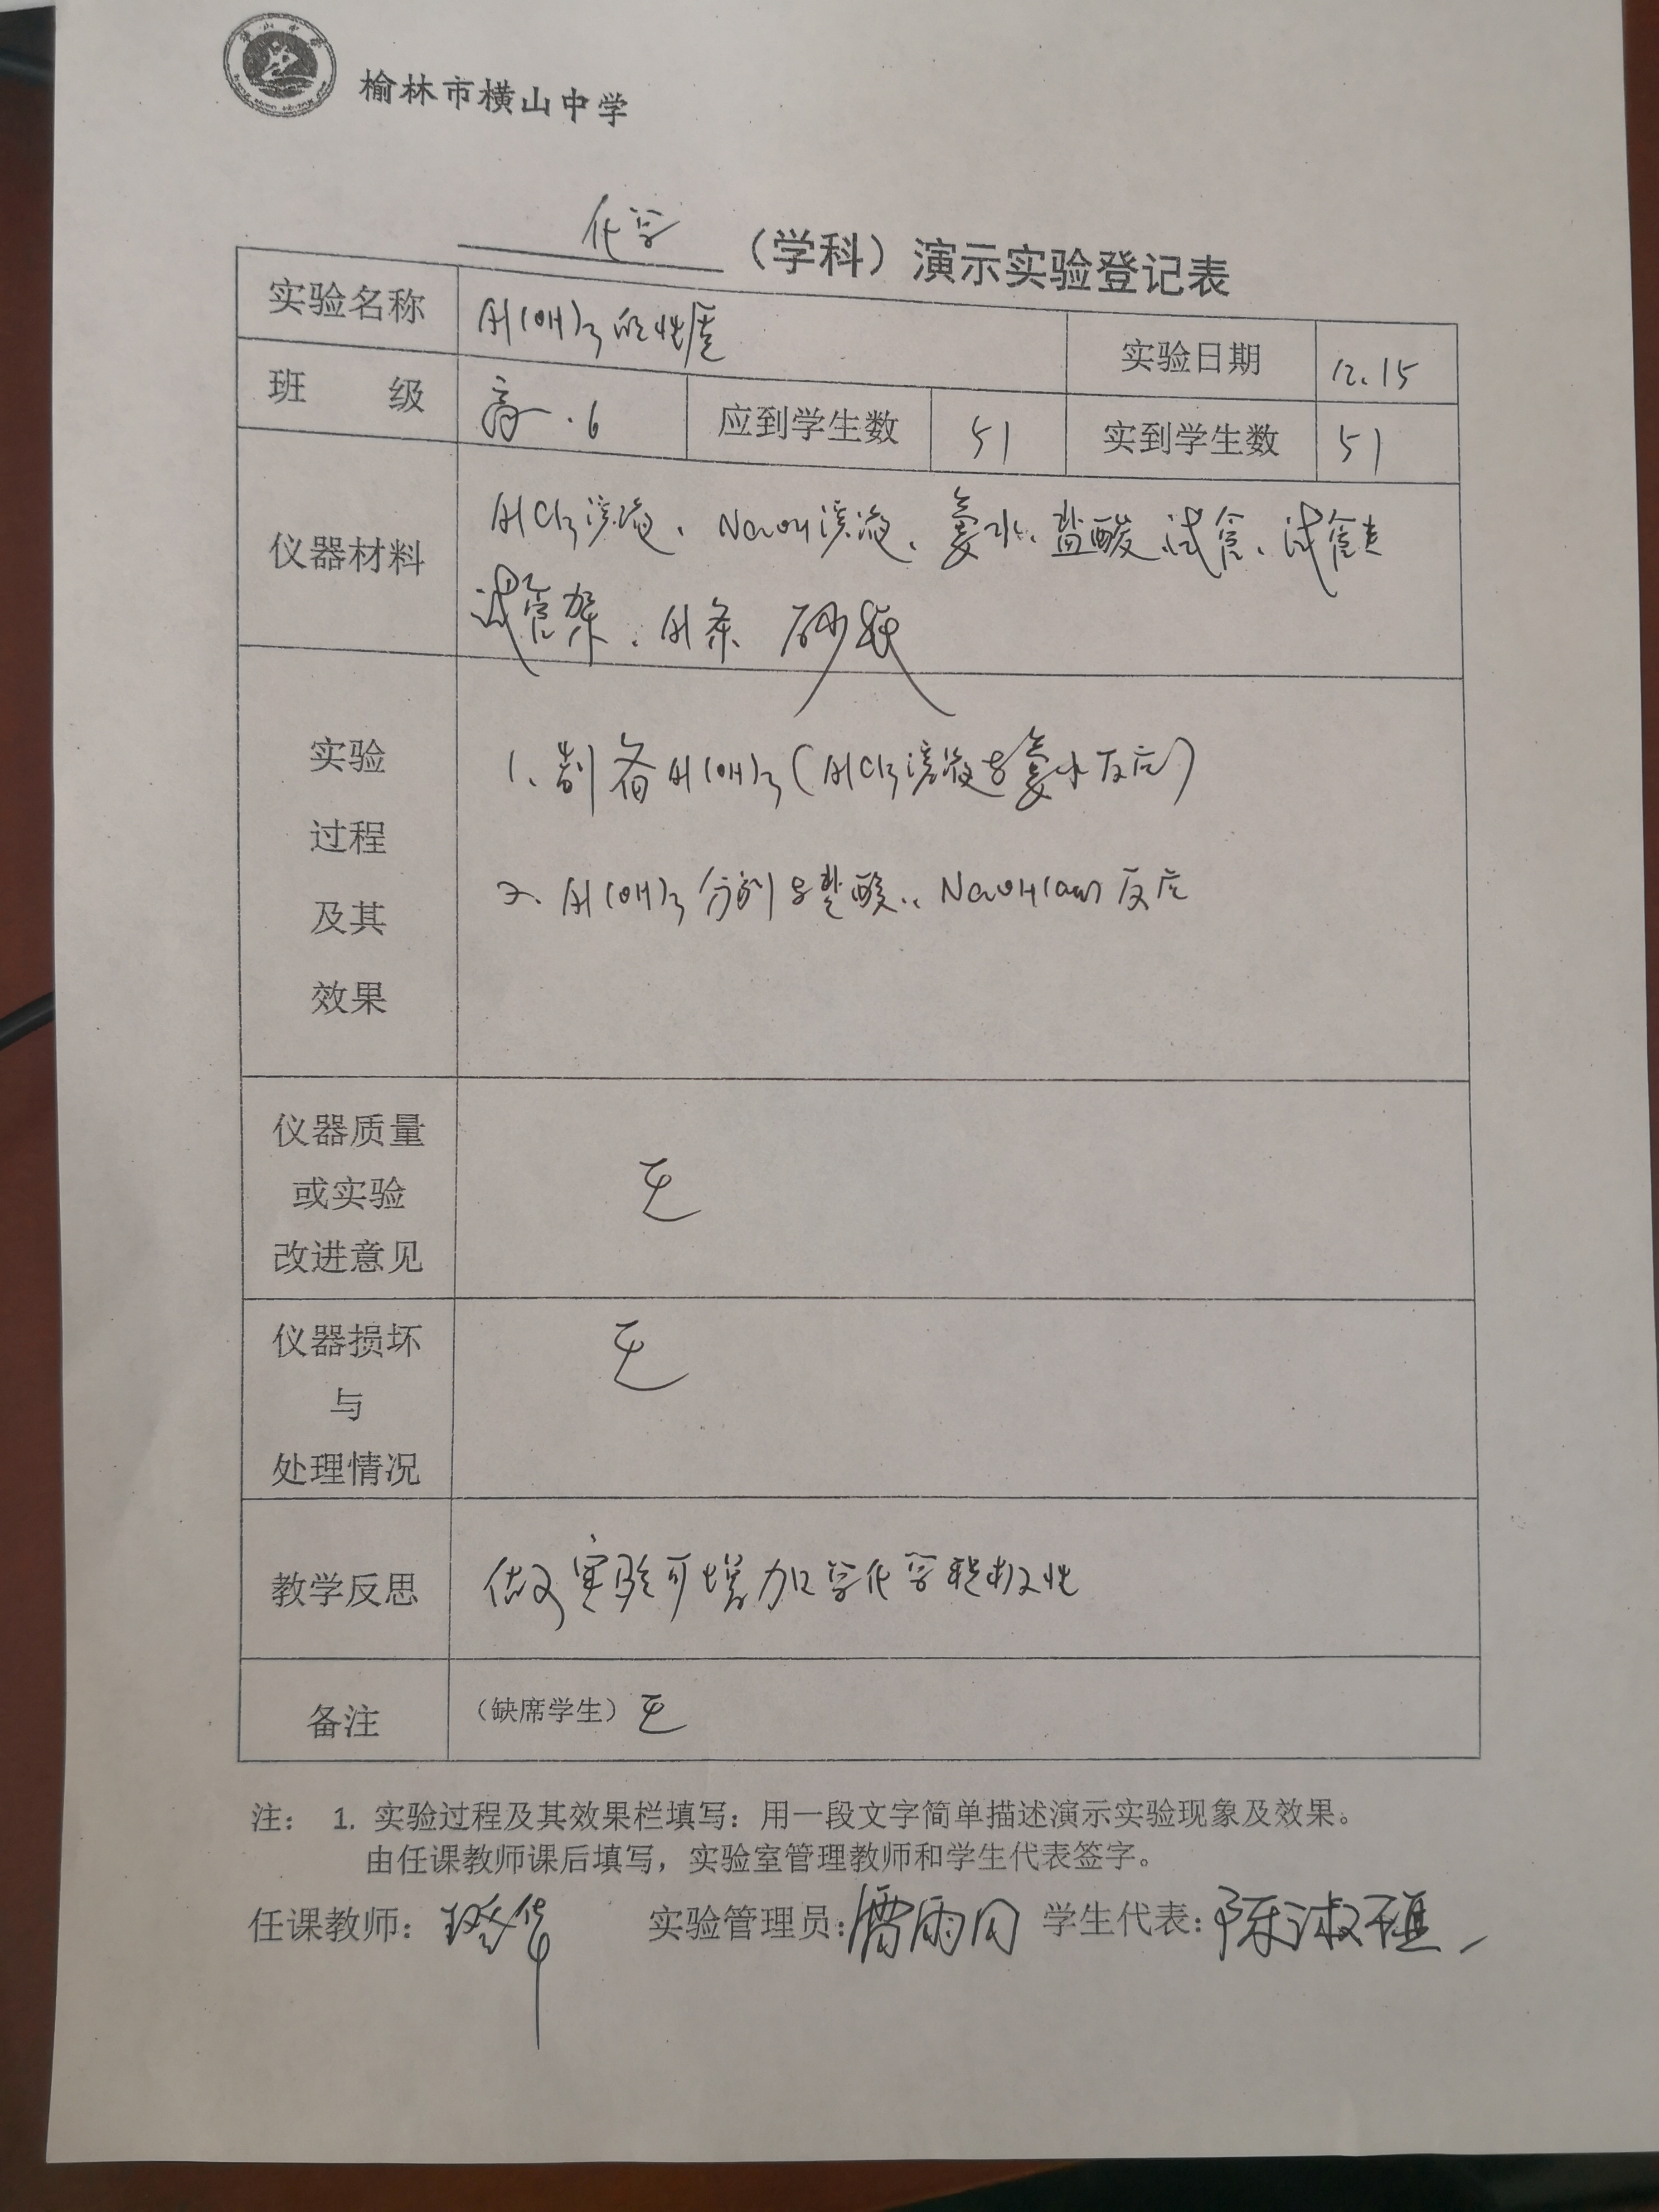 榆林市横山中学
化学（学科）演示实验登记表
实验名称 Al(OH)3的性质 实验日期 12.15
班 级 高一.6 应到学生数 51 实到学生数 51
仪器材料
AlCl3溶液、NaOH溶液、氨水、盐酸、试管、试管夹
试管架、Al条 砂纸
实验
过程
及其
效果
1、制备Al(OH)3(AlCl3溶液与氨水反应)
2、Al(OH)3分别与盐酸、NaOH(aq)反应
仪器质量
或实验
改进意见
无
仪器损坏
与
处理情况
无
教学反思 做实验可增加学化学积极性
备注 （缺席学生）无
注： 1. 实验过程及其效果栏填写：用一段文字简单描述演示实验现象及效果。
由任课教师课后填写，实验室管理教师和学生代表签字。
任课教师： 实验管理员： 学生代表：陈淑